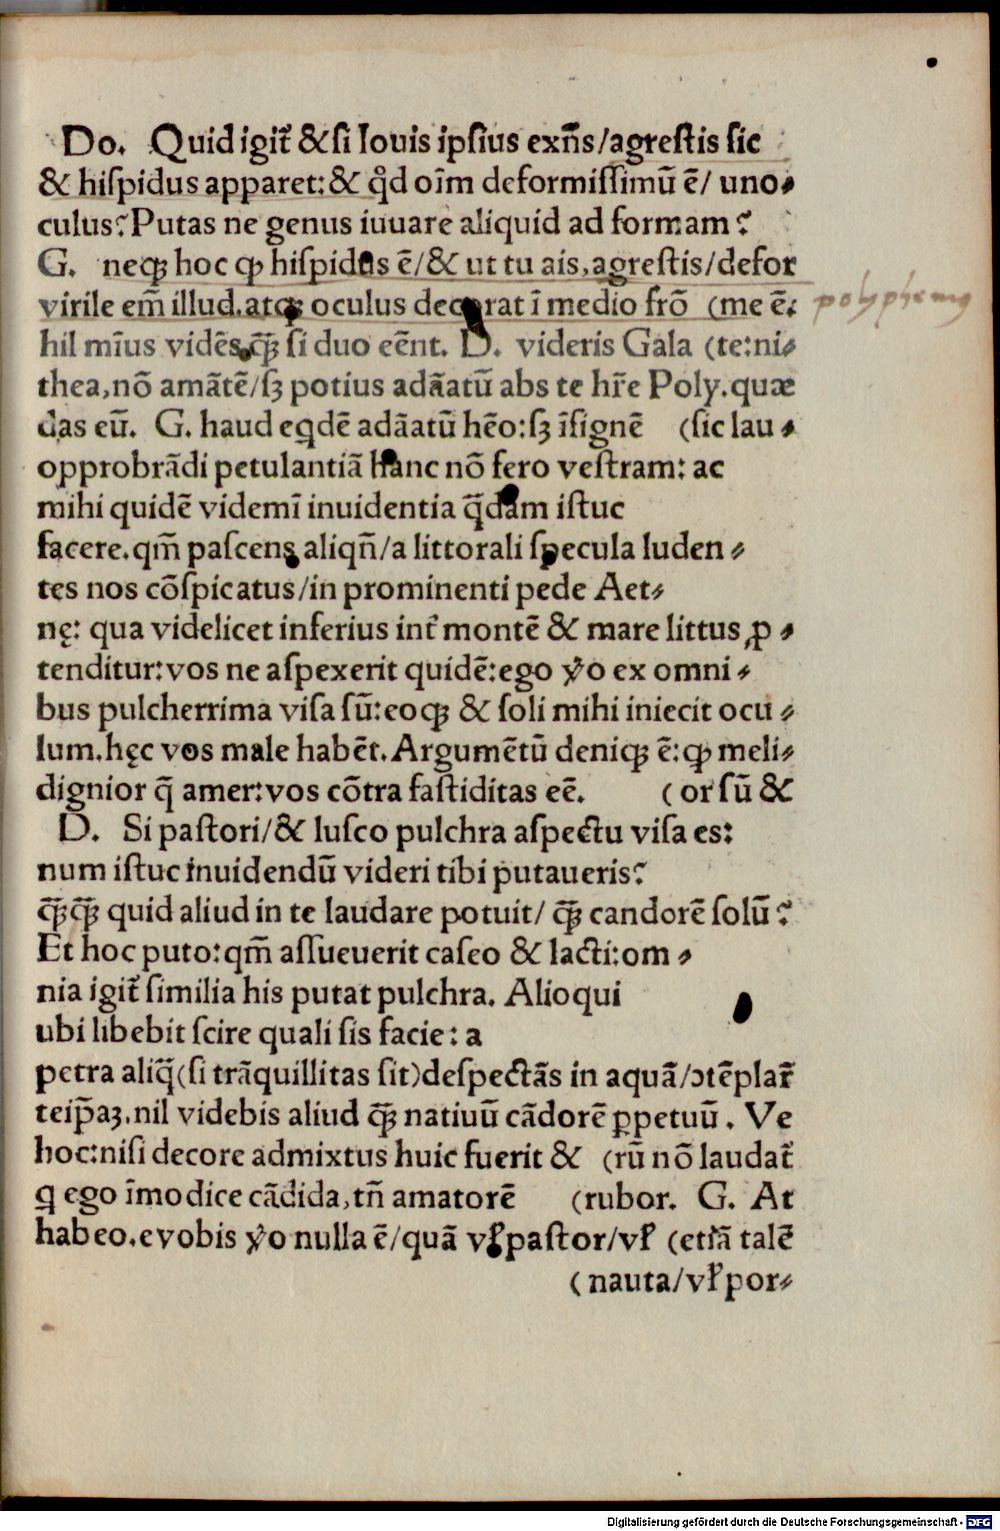 Do. Quid igit̃ & si Iouis ipsius exñs/agrestis sic
& hispidus apparet:& qd̾ oīm deformissimū ē/ uno⸗
culus? Putas ne genus iuuare aliquid ad formam?
G. neqꝫ hoc ꝙ hispidus ē/& ut tu ais,agrestis/defor
virile em̄ illud.atqꝫ oculus decorat ī medio frō (me ē:
hil mīus vidēs,q̄ꝫ si duo eēnt. D. videris Gala (te:ni⸗
thea,nō amātē/sꝫ potius adāatū abs te hr̄e Poly.quæ
das eū. G. haud eqdē adāatū hēo:sꝫ īsignē (sic lau⸗
opprobrādi petulantiā hanc nō fero vestram: ac
mihi quidē videmī inuidentia q̄dam istuc
facere.qm̄ pascens aliqñ/a littorali specula luden⸗
tes nos cōspicatus/in prominenti pede Aet⸗
nę: qua videlicet inferius int̃ montē & mare littus ꝓ⸗
tenditur:vos ne aspexerit quidē:ego ṽo ex omni⸗
bus pulcherrima visa sū:eoqꝫ & soli mihi iniecit ocu⸗
lum.hęc vos male habēt.Argumētū deniqꝫ ē:ꝙ meli⸗
dignior q̄ amer:vos cōtra fastiditas eē. (or sū &
D. Si pastori/& lusco pulchra aspectu visa es:
num istuc inuidendū videri tibi putaueris?
q̄ꝫq̄ꝫ quid aliud in te laudare potuit/ q̄ꝫ candorē solū?
Et hoc puto:qm̄ assueuerit caseo & lacti:om⸗
nia igit̃ similia his putat pulchra. Alioqui
ubi libebit scire quali sis facie: a
petra aliq̄(si trāquillitas sit)despectās in aquā/ↄtēplar̃
teip̄aꝫ.nil videbis aliud q̄ꝫ natiuū cādorē ꝑpetuū. Ve
hoc:nisi decore admixtus huic fuerit & (rū nō laudat̃
ꝗ ego īmodice cādida,tñ amatorē (rubor. G. At
habeo.e vobis ṽo nulla ē/quā vꝉ pastor/vꝉ (etiā talē
(nauta/vꝉ por⸗
polyphemus
Digitalisierung gefördert durch die Deutsche Forschungsgemeinschaft - DFG